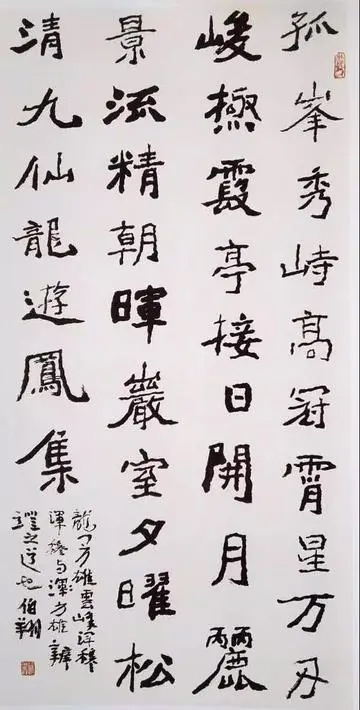 孤峯秀峙高冠霄星万刃
峻極霞亭接日開月麗
景流精朝暉巖室夕曜松
清九仙龍遊鳳集
龍門方雄雲峰渾穆
渾穆与
之道也伯翔